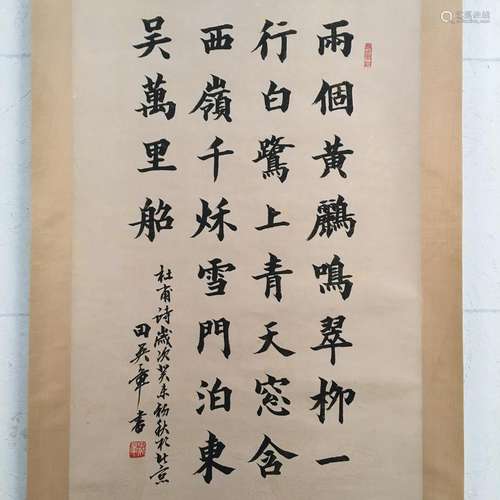 兩個黃鸝鳴翠柳一
行白鷺上青天窓含
西嶺千秌雪門泊東
吳萬里船
杜甫詩歲次癸未初秋於北京
田英章書